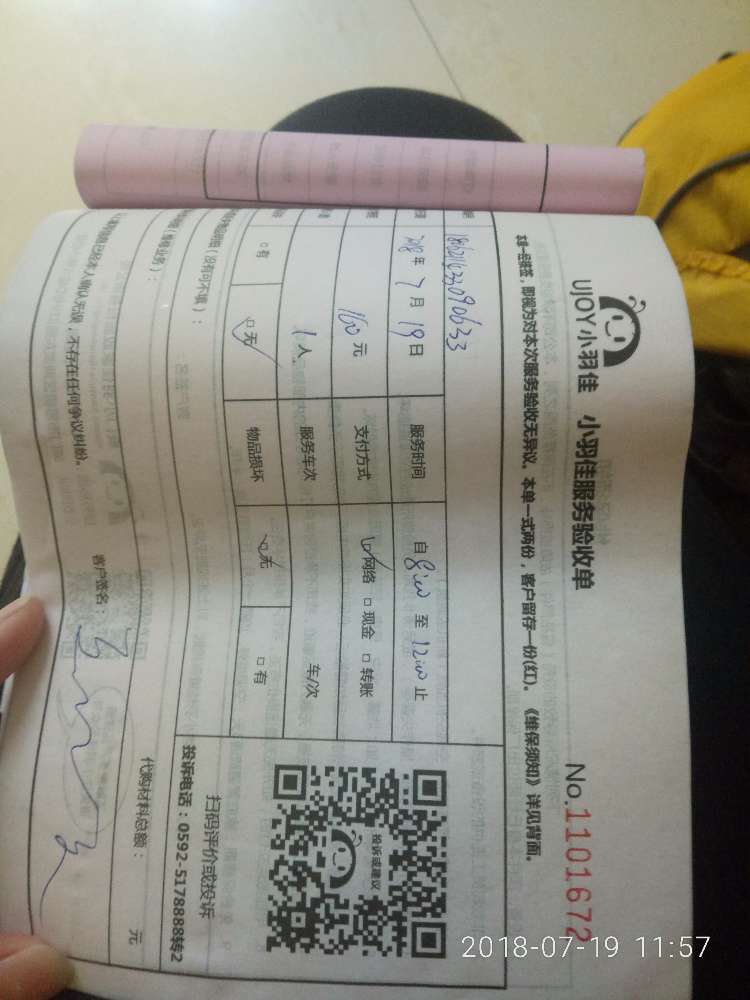 UJOY小羽佳 小羽佳服务验收单
No.1101672
本单一经签,即视为对本次服务验收无异议。本单一式两份,客户留存一份(红)。《维保须知》详见背面。
2018年7月19日 服务时间 自8:00至12:00止
160元 支付方式 ☑网络 □现金 □转账
1人 服务车次 车/次
□有 ☑无 物品损坏 ☑无 □有
(没有可不填):
投诉或建议
扫码评价或投诉
投诉电话:0592-5178888转2
代购材料总额: 元
人确认无误,不存在任何争议纠纷。
客户签名:
2018-07-19 11:57